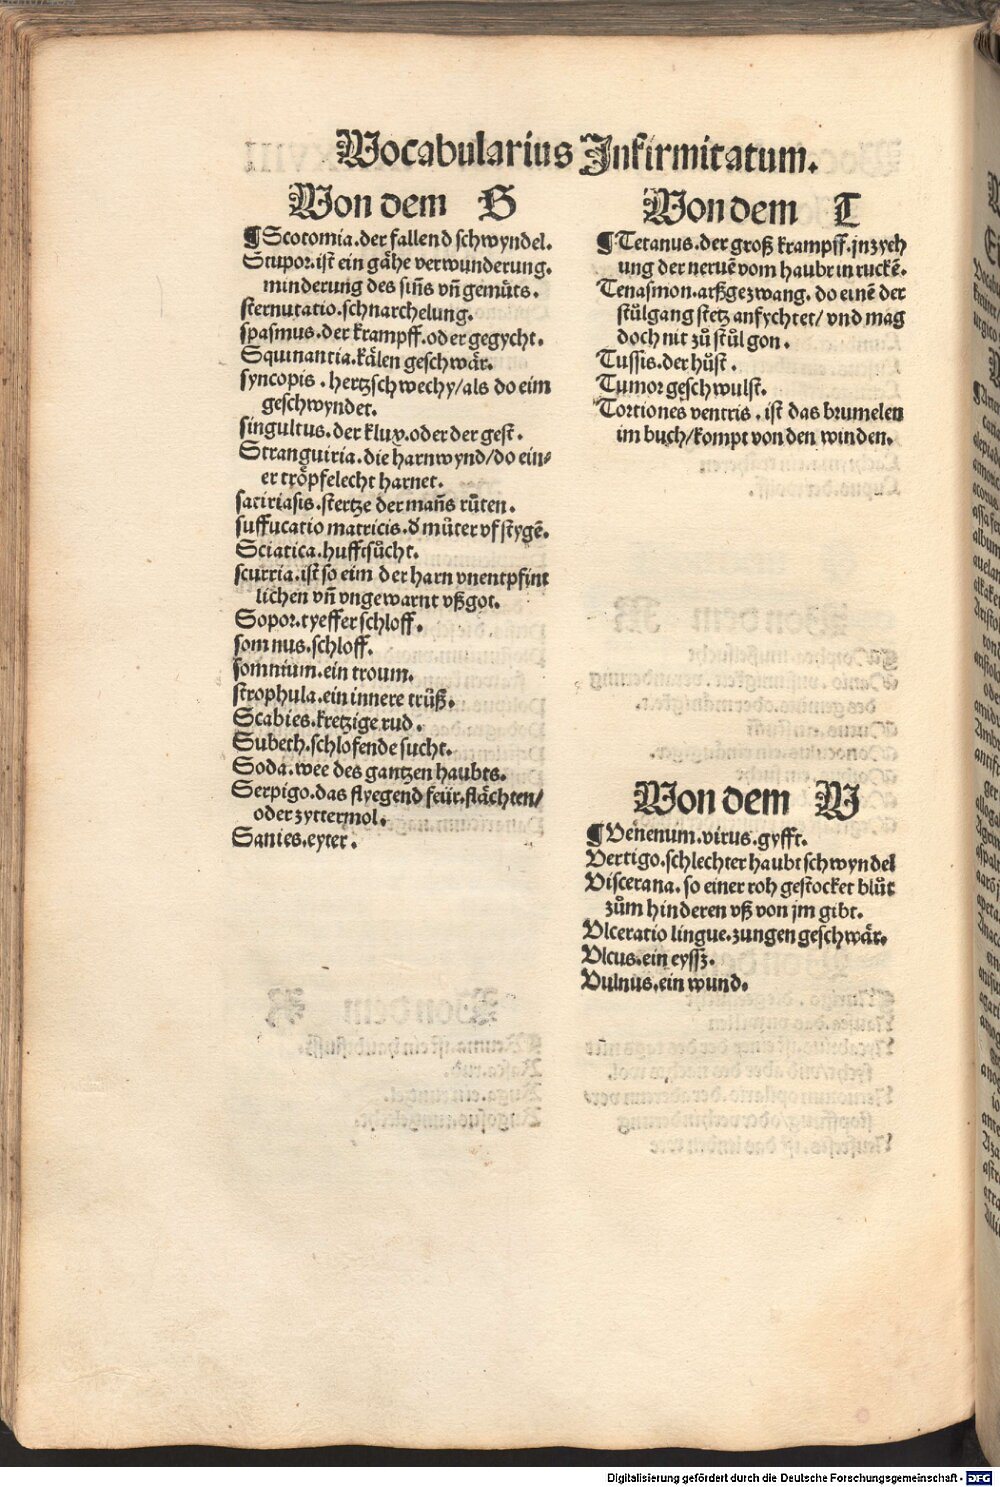 Vocabularius Infirmitatum.
Von dem S
¶Scotomia.der fallend schwyndel.
Stupor.ist ein gähe verwunderung.
minderung des siñs vñ gemüts.
sternutatio.schnarchelung.
spasmus.der krampff.oder gegycht.
Squinantia.kälen geschwär.
syncopis.hertzschwechy/als do eim
geschwyndet.
singultus.der klux.oder der gest.
Stranguiria.die harnwynd/do ein-
er tröpfelecht harnet.
satiriasis.stertze der mañs růten.
suffucatio matricis.d̕ můter vf stygē.
Sciatica.hufftsůcht.
scurria.ist so eim der harn vnentpfint
lichen vñ vngewarnt vßgot.
Sopor.tyeffer schloff.
somnus.schloff.
somnium.ein troum.
strophula.ein innere trůß.
Scabies.kretzige rud.
Subeth.schlofende sucht.
Soda.wee des gantzen haubts.
Serpigo.das flyegend feür.flächten/
oder zyttermol.
Sanies.eyter.
Von dem T
¶Tetanus.der groß krampff.jnzyeh
ung der neruē vom haubt in ruckē.
Tenasmon.arßgezwang.do einē der
stůlgang stetz anfychtet/vnd mag
doch nit zů stůl gon.
Tussis.der hůst.
Tumor geschwulst.
Tortiones ventris.ist das brumelen
im buch/kompt von den winden.
Von dem V
¶Venenum.virus.gyfft.
Vertigo.schlechter haubtschwyndel
Viscerana.so einer roh gestocket blůt
zům hinderen vß von jm gibt.
Vlceratio lingue.zungen geschwär.
Vlcus.ein eyssz.
Vulnus.ein wund.
Digitalisierung gefördert durch die Deutsche Forschungsgemeinschaft - DFG